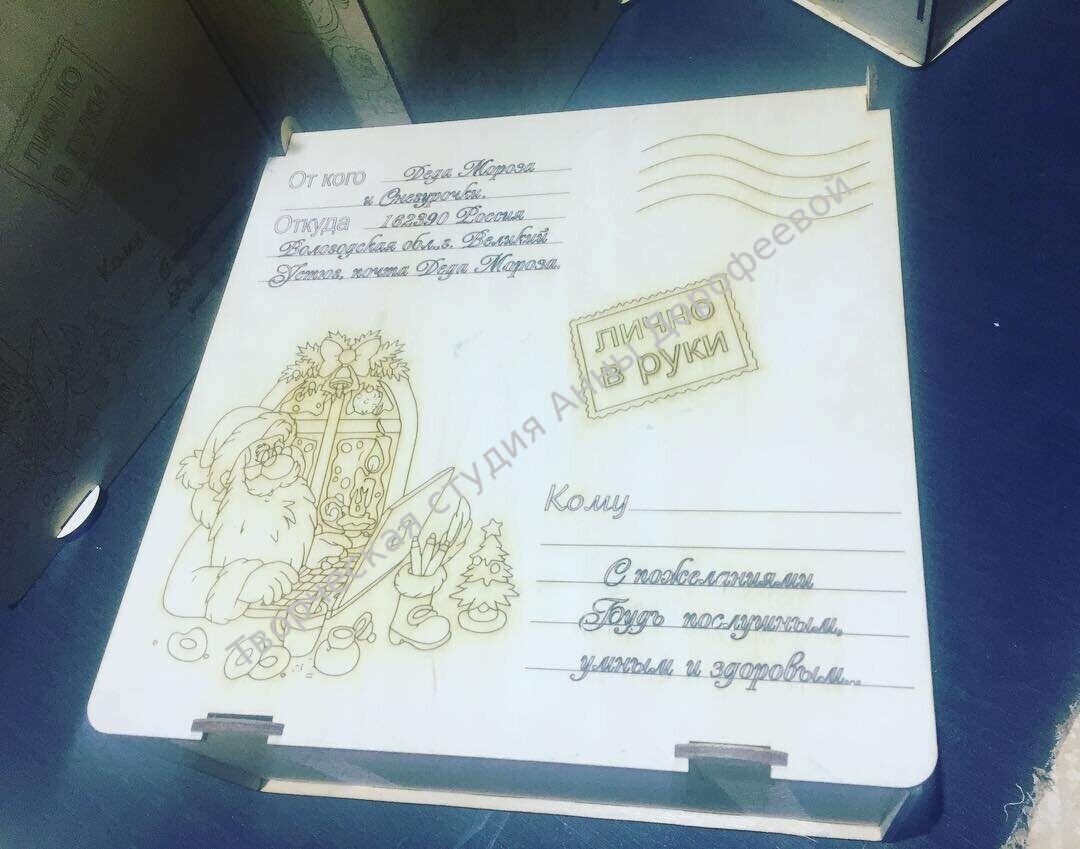 От кого Деда Мороза
и Снегурочки.
Откуда 162390 Россия
Вологодская обл.,г. Великий
Устюг, почта Деда Мороза.
лично
в руки
Кому
С пожеланиями
Будь послушным,
умным и здоровым...
Творческая студия Анны Дорофеевой
лично
в руки
Кому